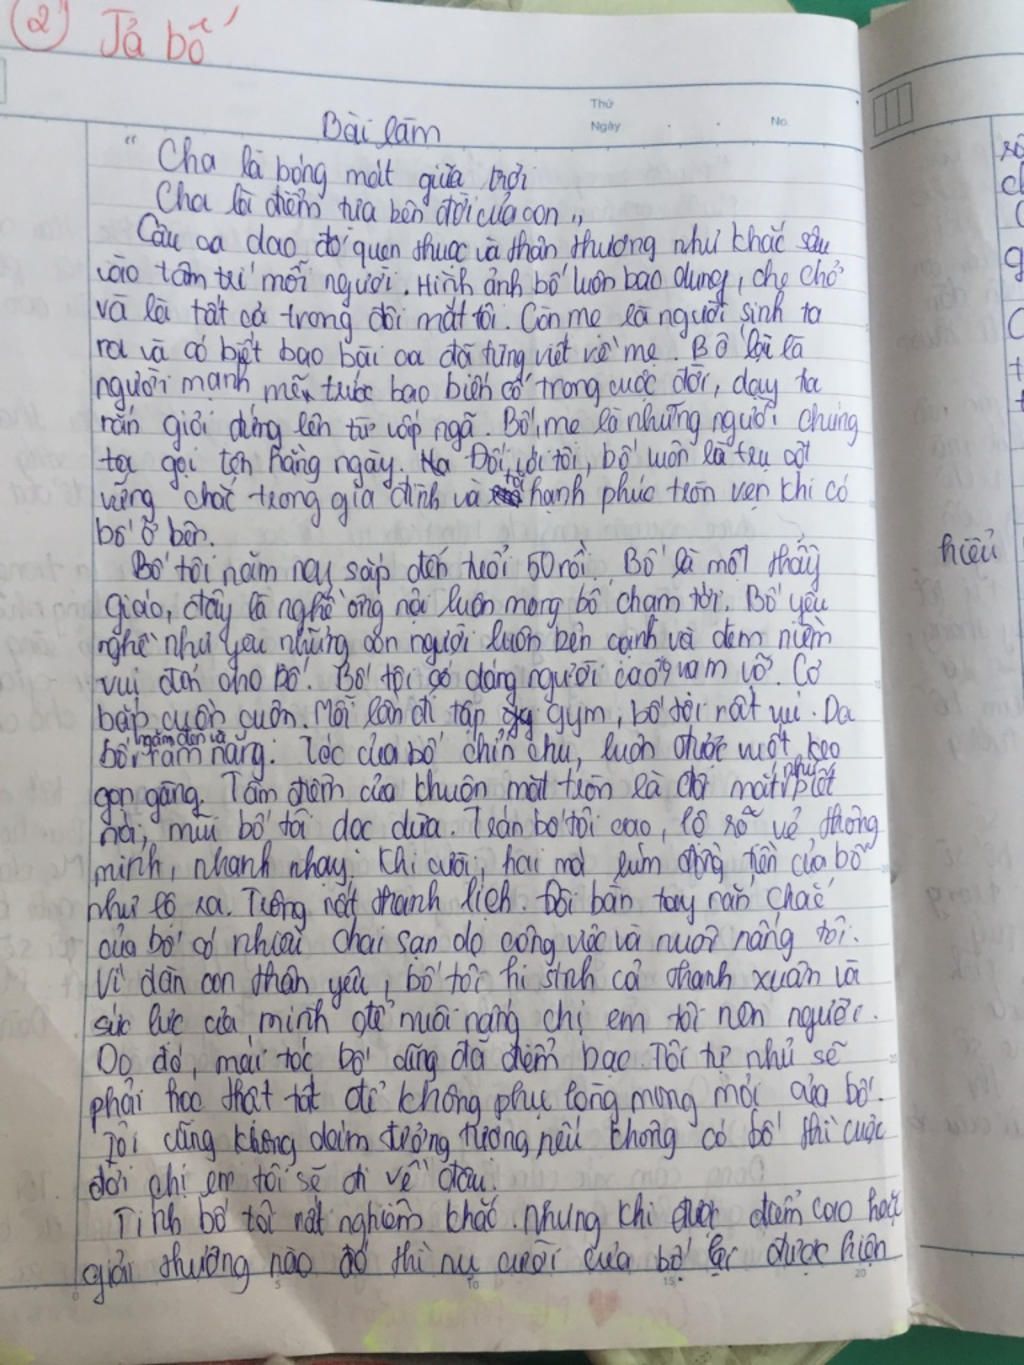 2 Tả bố
Thứ
Ngày No.
Bài làm
" Cha là bóng mát giữa trời
Cha là điểm tựa bên đời của con "
Câu ca dao đó quen thuộc và thân thương như khắc sâu
vào tâm trí mỗi người. Hình ảnh bố luôn bao dung, che chở
và là tất cả trong đôi mắt tôi. Còn mẹ là người sinh ta
ra và có biết bao bài ca đã từng viết về mẹ. Bố lại là
người mạnh mẽ trước bao biến cố trong cuộc đời, dạy ta
rắn giỏi đứng lên từ vấp ngã. Bố, mẹ là những người chúng
ta gọi tên hằng ngày. Đối với tôi, bố luôn là trụ cột
vững chắc trong gia đình và hạnh phúc trọn vẹn khi có
bố ở bên.
Bố tôi năm nay sắp đến tuổi 50 rồi. Bố là một thầy
giáo, đây là nghề ông nội luôn mong bố chạm tới. Bố yêu
nghề như yêu những con người luôn bên cạnh và đem niềm
vui đến cho bố. Bố tôi có dáng người cao, vạm vỡ. Cơ
bắp cuồn cuộn. Mỗi lần đi tập gym, bố tôi rất vui. Da
bố ngăm đen và rám nắng. Tóc của bố chỉn chu, luôn được vuốt keo
gọn gàng. Tâm điểm của khuôn mặt tròn là đôi mắt
nái, mũi bố tôi dọc dừa. Trán bố tôi cao, lộ rõ vẻ thông
minh, nhanh nhạy. Khi cười, hai má lúm đồng tiền của bố
như lộ ra. Trông rất thanh lịch. Đôi bàn tay rắn chắc
của bố có nhiều chai sạn do công việc và nuôi nấng tôi.
Vì đàn con thân yêu, bố tôi hi sinh cả thanh xuân và
sức lực của mình để nuôi nấng chị em tôi nên người.
Do đó, mái tóc bố cũng đã điểm bạc. Tôi tự nhủ sẽ
phải học thật tốt để không phụ lòng mong mỏi của bố.
Tôi cũng không dám tưởng tượng nếu không có bố thì cuộc
đời chị em tôi sẽ đi về đâu.
Tính bố tôi rất nghiêm khắc. Nhưng khi được điểm cao hoặc
giải thưởng nào đó thì nụ cười của bố lại được hiện
hiểu